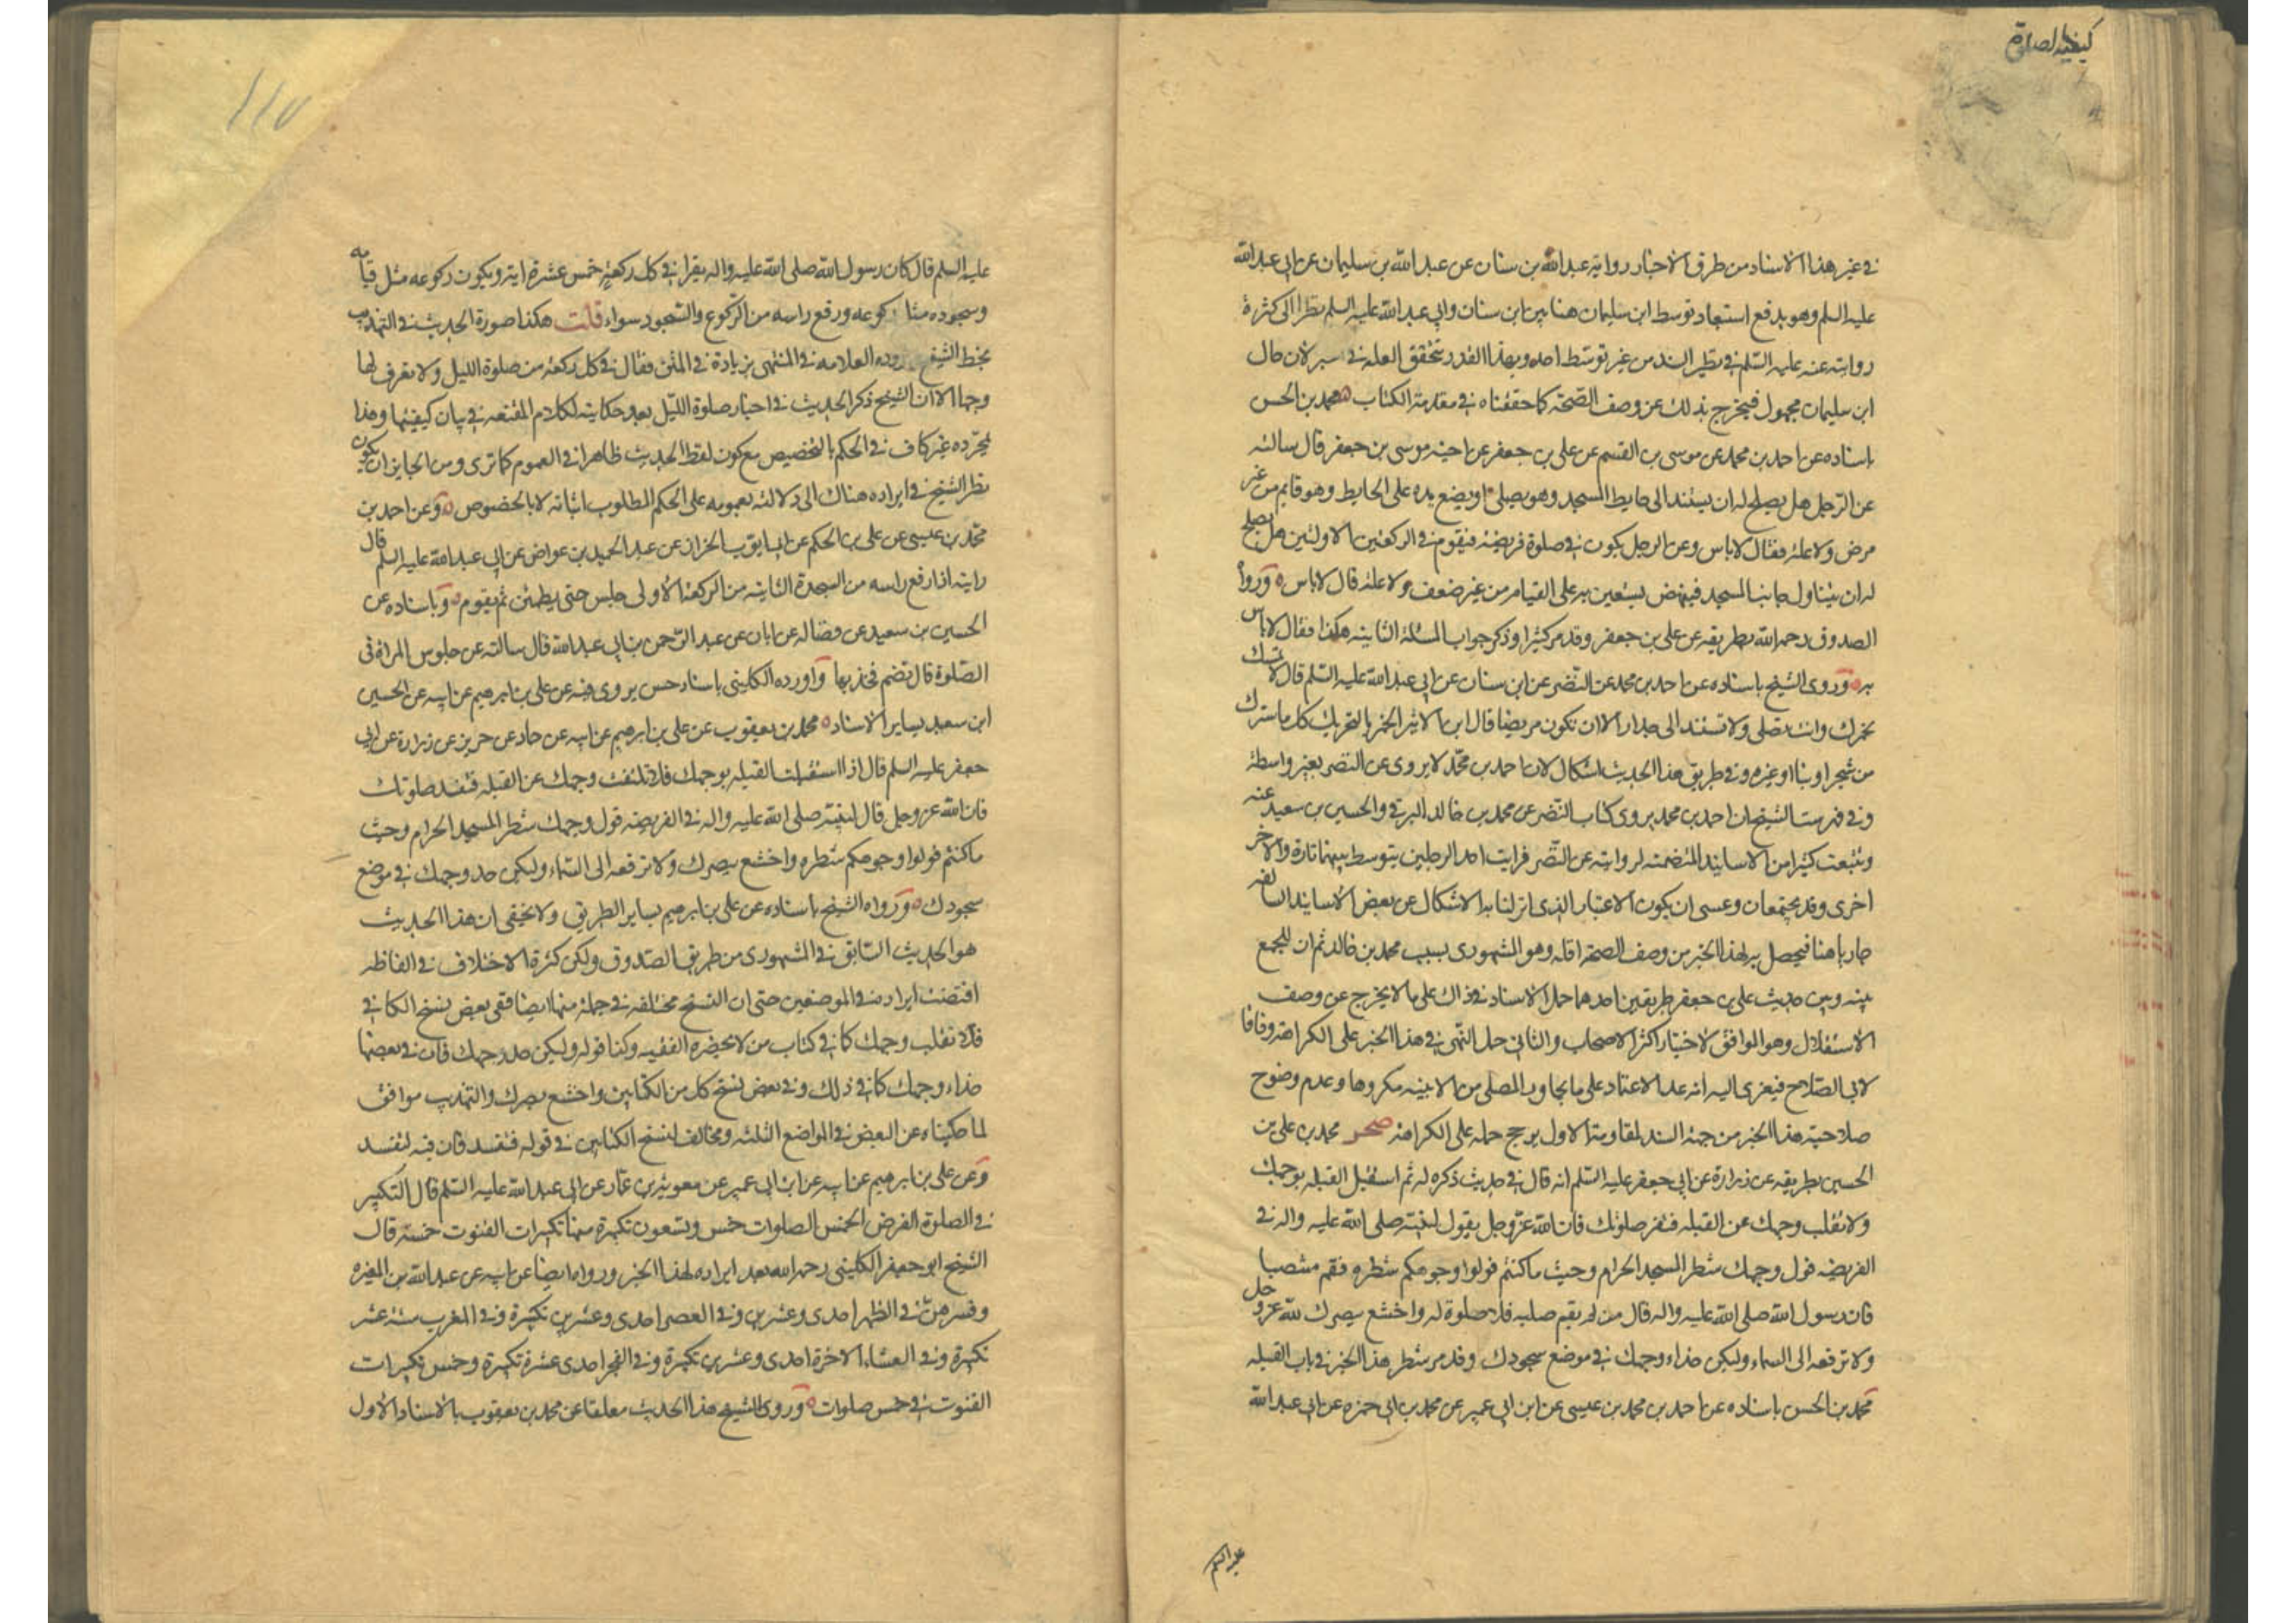 كيفية الصلوة
في غير هذا الاسناد من طرق الاخبار رواية عبد الله بن سنان عن عبد الله بن سليمان عن ابي عبد الله
عليه السلم وهو يدفع استبعاد توسط ابن سليمان هنا بين ابن سنان وابي عبد الله عليه السلم نظرا الى كثرة
روايته عنه عليه السلم في نظير السند من غير توسط احد وبهذا القدر تتحقق العله في لان حال
ابن سليمان مجهول فيخرج بذلك عن وصف الصحة كما حققناه في مقدمة الكتاب ه محمد بن الحسن
باسناده عن احمد بن محمد عن موسى بن القسم عن علي بن جعفر عن اخيه موسى بن جعفر قال سالته
عن الرجل هل يصلح له ان يستند الى حايط المسجد وهو يصلي او يضع يده على الحايط وهو قايم من غير
مرض ولا علة فقال لا باس وعن الرجل يكون في صلوة فريضة فيقوم في الركعتين الاولتين هل يصلح
له ان يتناول جانب المسجد فينهض يستعين به على القيام من غير ضعف ولا علة قال لا باس ه وروا
الصدوق رحمه الله بطريقه عن علي بن جعفر وقد مر كثيرا وذكر جواب المسئلة الثانية هكذا فقال لا باس
به ه وروى الشيخ باسناده عن احمد بن محمد عن النضر عن ابن سنان عن ابي عبد الله عليه السلم قال لا تمسك
بخمرك وانت تصلي ولا تستند الى جدار الا ان تكون مريضا قال ابن الاثير الخمر بالتحريك كل ما سترك
من شجر او بنا او غيره وفي طريق هذا الحديث اشكال لان احمد بن محمد لا يروي عن النضر بغير واسطة
وفي فهرست الشيخ ان احمد بن محمد يروي كتاب النضر عن محمد بن خالد البرقي والحسين بن سعيد عنه
وتتبعت كثيرا من الاسانيد المتضمنة لروايته عن النضر فرايت احد الرجلين يتوسط بينهما تارة والآخر
اخرى وقد يجتمعان وعسى ان يكون الاعتبار الذي ازلنا به الاشكال عن بعض الاسانيد السالفه
جاريا هنا فيحصل به لهذا الخبر من وصف الصحة اقله وهو المشهوري بسبب محمد بن خالد ثم ان للجمع
بينه وبين حديث علي بن جعفر طريقين احدهما حمل الاسناد في ذاك على ما لا يخرج عن وصف
الاستقلال وهو الموافق لاختيار اكثر الاصحاب والثاني حمل النهي في هذا الخبر على الكراهة وفاقا
لابي الصلاح فيعزى اليه انه عد الاعتماد على ما يجاور المصلي من الابنيه مكروها وعدم وضوح
صلاحية هذا الخبر من جهة السند لمقاومة الاول يرجح حمله على الكراهة صحر محمد بن علي بن
الحسين بطريقه عن زرارة عن ابي جعفر عليه السلم انه قال في حديث ذكره له ثم استقبل القبله بوجهك
ولا تقلب وجهك عن القبله فتفسد صلوتك فان الله عز وجل يقول لنبيه صلى الله عليه واله في
الفريضه فول وجهك شطر المسجد الحرام وحيث ما كنتم فولوا وجوهكم شطره فقم منتصبا
فان رسول الله صلى الله عليه واله قال من لم يقم صلبه فلا صلوة له واخشع ببصرك لله عز وجل
ولا ترفعه الى السماء وليكن حذاء وجهك في موضع سجودك وقد مر شطر هذا الخبر في باب القبله
محمد بن الحسن باسناده عن احمد بن محمد بن عيسى عن ابن ابي عمير عن محمد بن ابي حمزه عن ابي عبد الله
عليه السلم
١١٥
عليه السلم قال كان رسول الله صلى الله عليه واله يقرا في كل ركعة خمس عشرة اية ويكون ركوعه مثل قيامه
وسجوده مثل ركوعه ورفع راسه من الركوع والسجود سواء قلت هكذا صورة الحديث في التهذيب
بخط الشيخ ورده العلامه في المنتهى بزيادة في المتن فقال في كل ركعة من صلوة الليل ولا نعرف لها
وجها الا ان الشيخ ذكر الحديث في اخبار صلوة الليل بعد حكايته لكلام المقنعه في بيان كيفيتها وهذا
بمجرده غير كاف في الحكم بالتخصيص مع كون لفظ الحديث ظاهرا في العموم كما ترى ومن الجايز ان يكون
نظر الشيخ في ايراده هناك الى دلالته بعمومه على الحكم المطلوب اثباته لا بالخصوص ه وعن احمد بن
محمد بن عيسى عن علي بن الحكم عن ابي ايوب الخزاز عن عبد الحميد بن عواض عن ابي عبد الله عليه السلم قال
رايته اذا رفع راسه من السجدة الثانيه من الركعة الاولى جلس حتى يطمئن ثم يقوم ه وباسناده عن
الحسين بن سعيد عن فضاله عن ابان عن عبد الرحمن بن ابي عبد الله قال سالته عن جلوس المراة في
الصلوة قال تضم فخذيها واورده الكليني باسناد حسن يروى فيه عن علي بن ابرهيم عن ابيه عن الحسين
ابن سعيد بساير الاسناد ه محمد بن يعقوب عن علي بن ابرهيم عن ابيه عن حماد عن حريز عن زرارة عن ابي
جعفر عليه السلم قال اذا استقبلت القبله بوجهك فلا تلتفت وجهك عن القبله فتفسد صلوتك
فان الله عز وجل قال لنبيه صلى الله عليه واله في الفريضه فول وجهك شطر المسجد الحرام وحيث
ما كنتم فولوا وجوهكم شطره واخشع ببصرك ولا ترفعه الى السماء وليكن حد وجهك في موضع
سجودك ه ورواه الشيخ باسناده عن علي بن ابرهيم بساير الطريق ولا يخفى ان هذا الحديث
هو الحديث السابق في المشهوري من طريق الصدوق ولكن كثرة الاختلاف في الفاظه
اقتضت ايراده في الموضعين حتى ان النسخ مختلفه في جملة منها ايضا ففي بعض نسخ الكافي
فلا تقلب وجهك كما في كتاب من لا يحضره الفقيه وكذا قوله وليكن حد وجهك فان في بعضها
حذاء وجهك كما في ذلك وفي بعض نسخ كل من الكتابين واخشع بصرك والتهذيب موافق
لما حكيناه عن البعض في المواضع الثلثه ومخالف لنسخ الكتابين في قوله فتفسد فان فيه لتفسد
وعن علي بن ابرهيم عن ابيه عن ابن ابي عمير عن معوية بن عمار عن ابي عبد الله عليه السلم قال التكبير
في الصلوة الفرض الخمس الصلوات خمس وتسعون تكبيرة منها تكبيرات القنوت خمسة قال
الشيخ ابو جعفر الكليني رحمه الله بعد ايراده لهذا الخبر ورواه ايضا عن ابيه عن عبد الله بن المغيره
وفسرهن في الظهر احدى وعشرين وفي العصر احدى وعشرين تكبيرة وفي المغرب ستة عشر
تكبيرة وفي العشاء الاخرة احدى وعشرين تكبيرة وفي الفجر احدى عشرة تكبيرة وخمس تكبيرات
القنوت في خمس صلوات ه وروى الشيخ هذا الحديث معلقا عن محمد بن يعقوب بالاسناد الاول